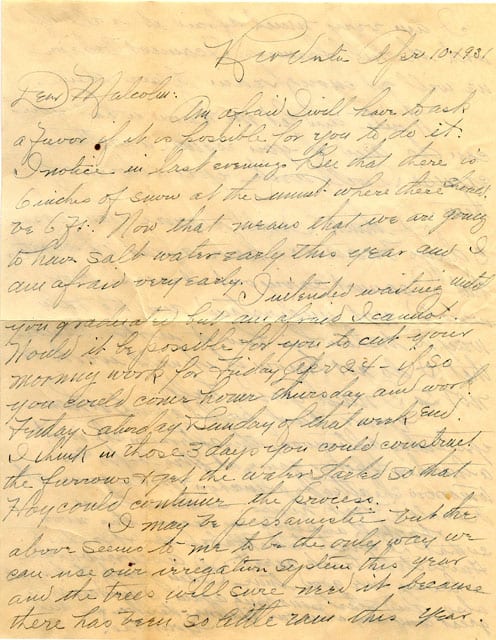 Rio Vista Apr 10-1931
Dear Malcolm:
Am afraid I will have to ask
a favor if it is possible for you to do it.
I notice in last evenings Bee that there is
6 inches of snow at the summit where there should
be 6 ft. Now that means that we are going
to have salt water early this year and I
am afraid very early.
I intended waiting until
you graduated but am afraid I cannot.
Would it be possible for you to cut your
morning work for Friday Apr 24 - if so
you could come home thursday and work
Friday Saturday & Sunday of that week end.
I think in those 3 days you could construct
the furrows & get the water started so that
Hoy could continue the process.
I may be pessamistic but the
above seems to me to be the only way we
can use our irregation system this year
and the trees will sure need it because
there has been so little rain this year.